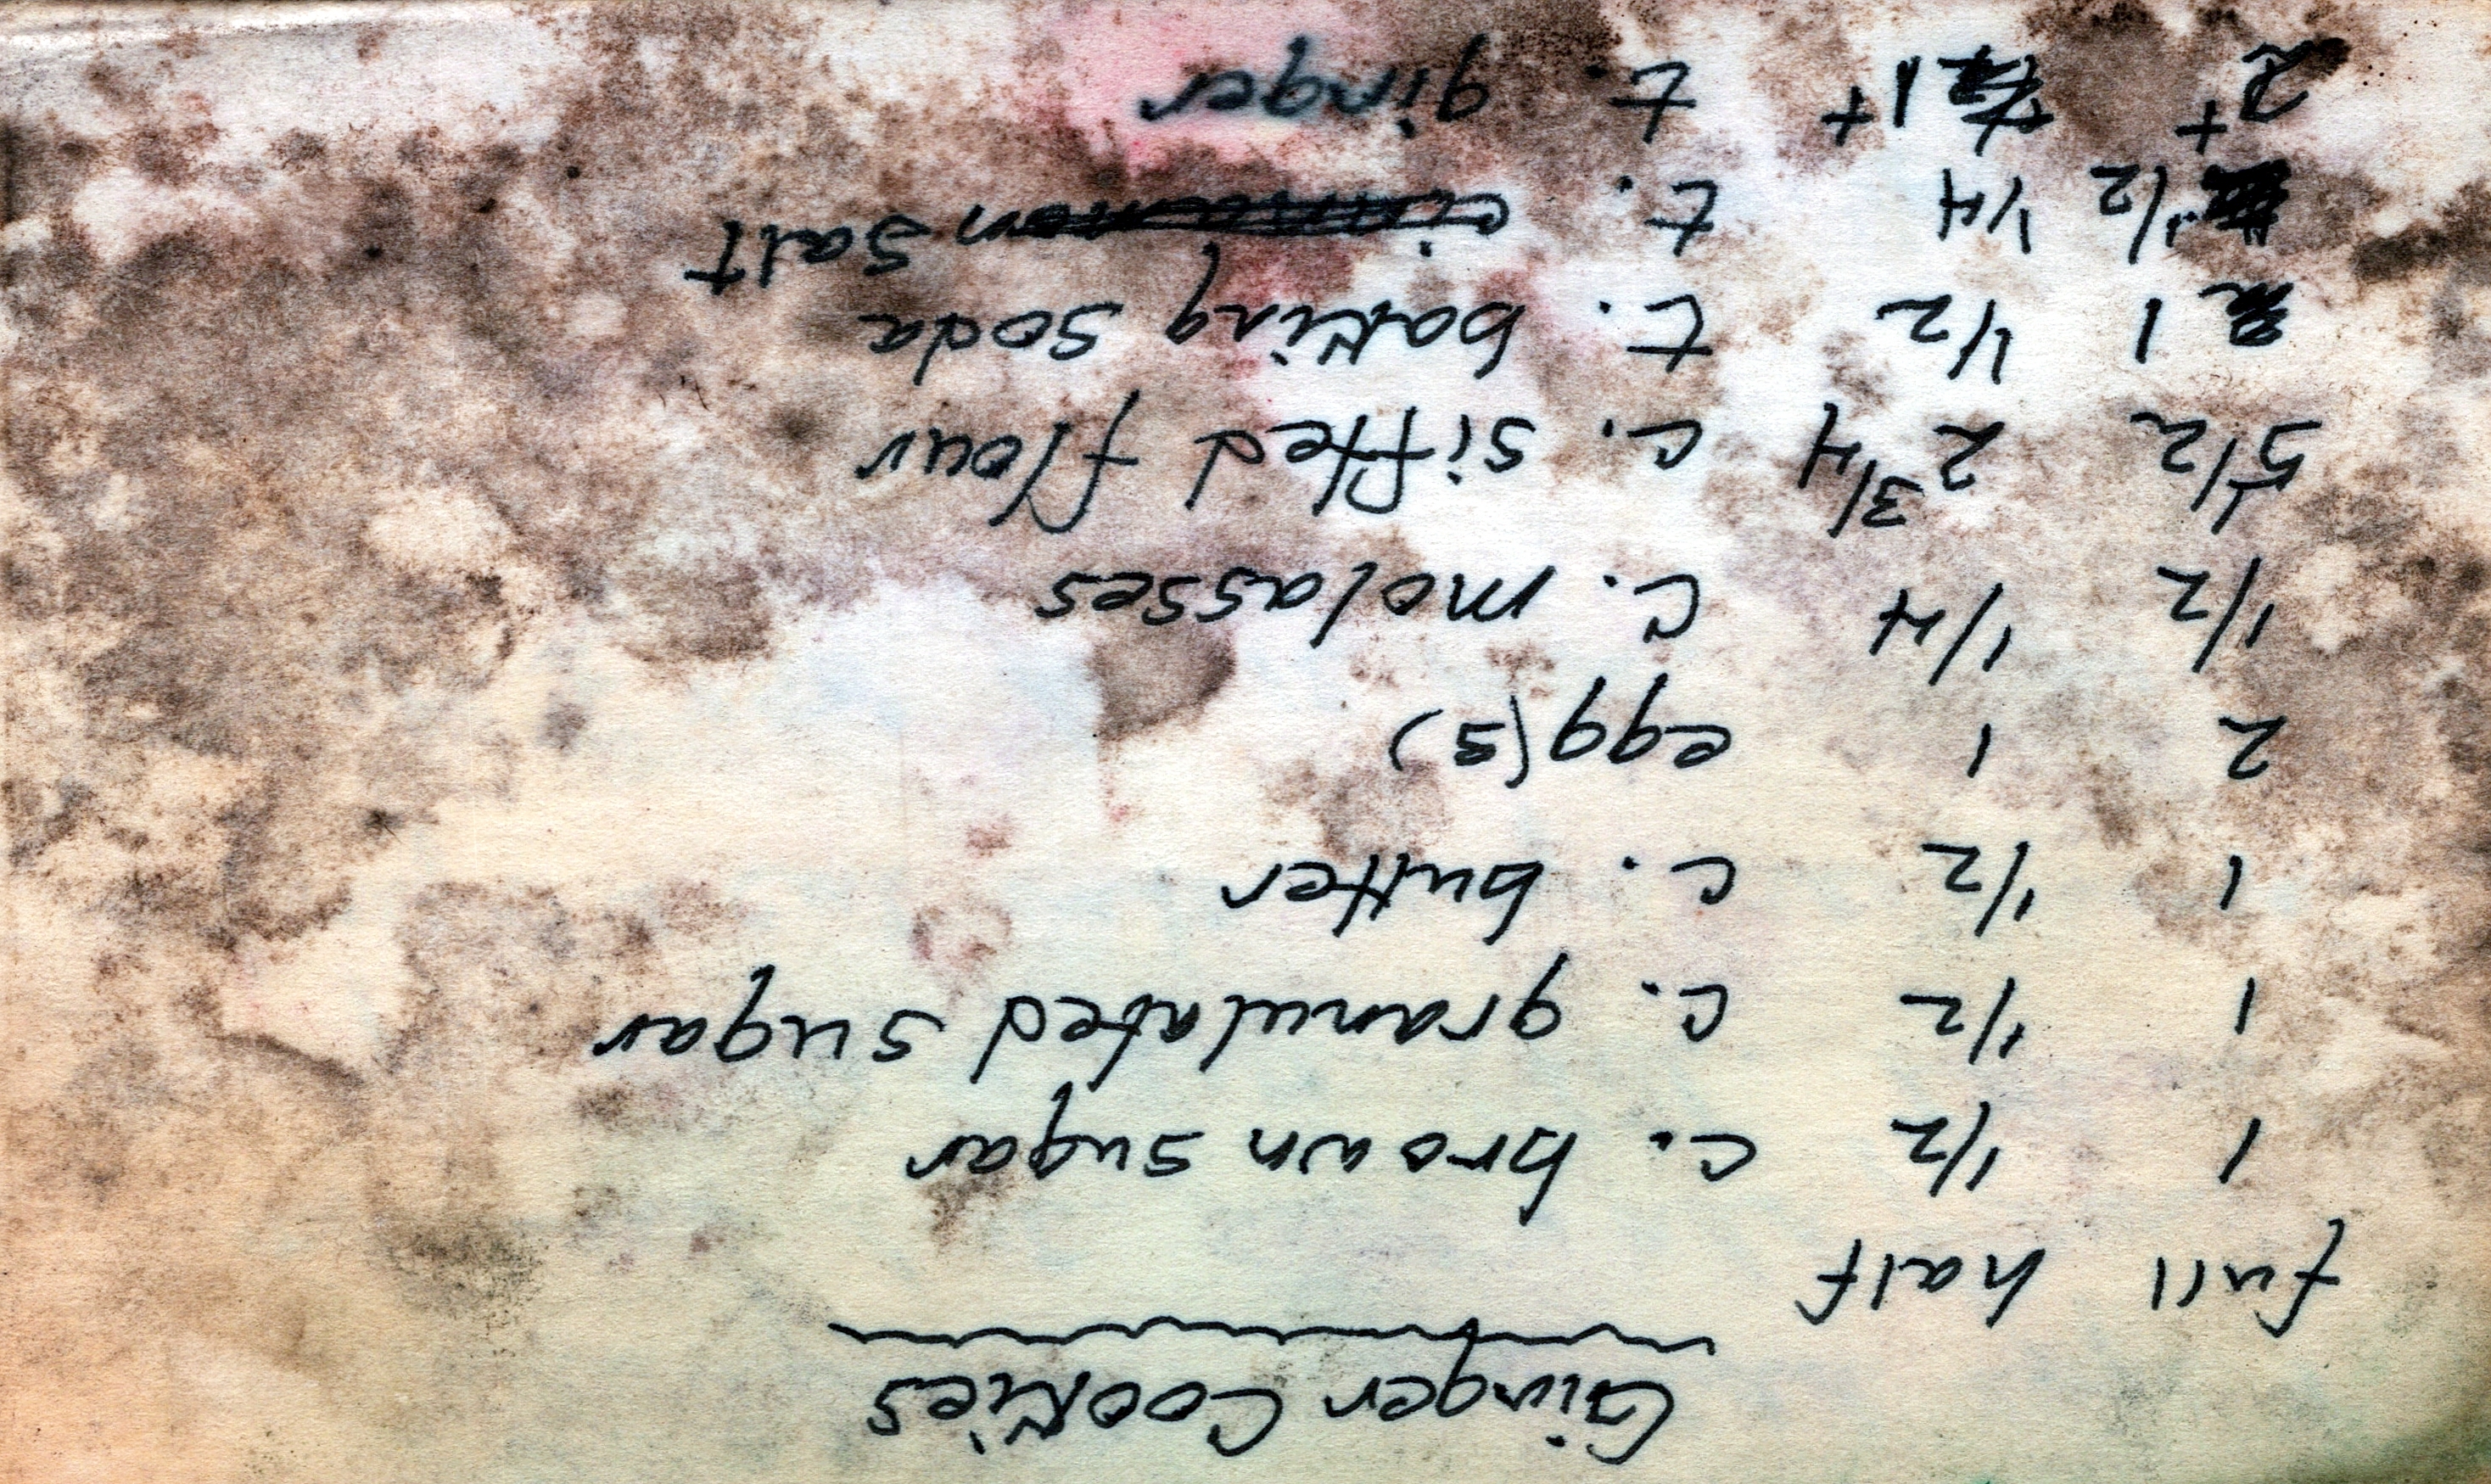 Ginger Cookies
full half
1 1/2 c. brown sugar
1 1/2 c. granulated sugar
1 1/2 c. butter
2 1 egg(s)
1/2 1/4 c. molasses
5 1/2 2 3/4 c. sifted flour
1 1/2 t. baking soda
1/2 1/4 t. cinnamon salt
2+ 1+ t. ginger